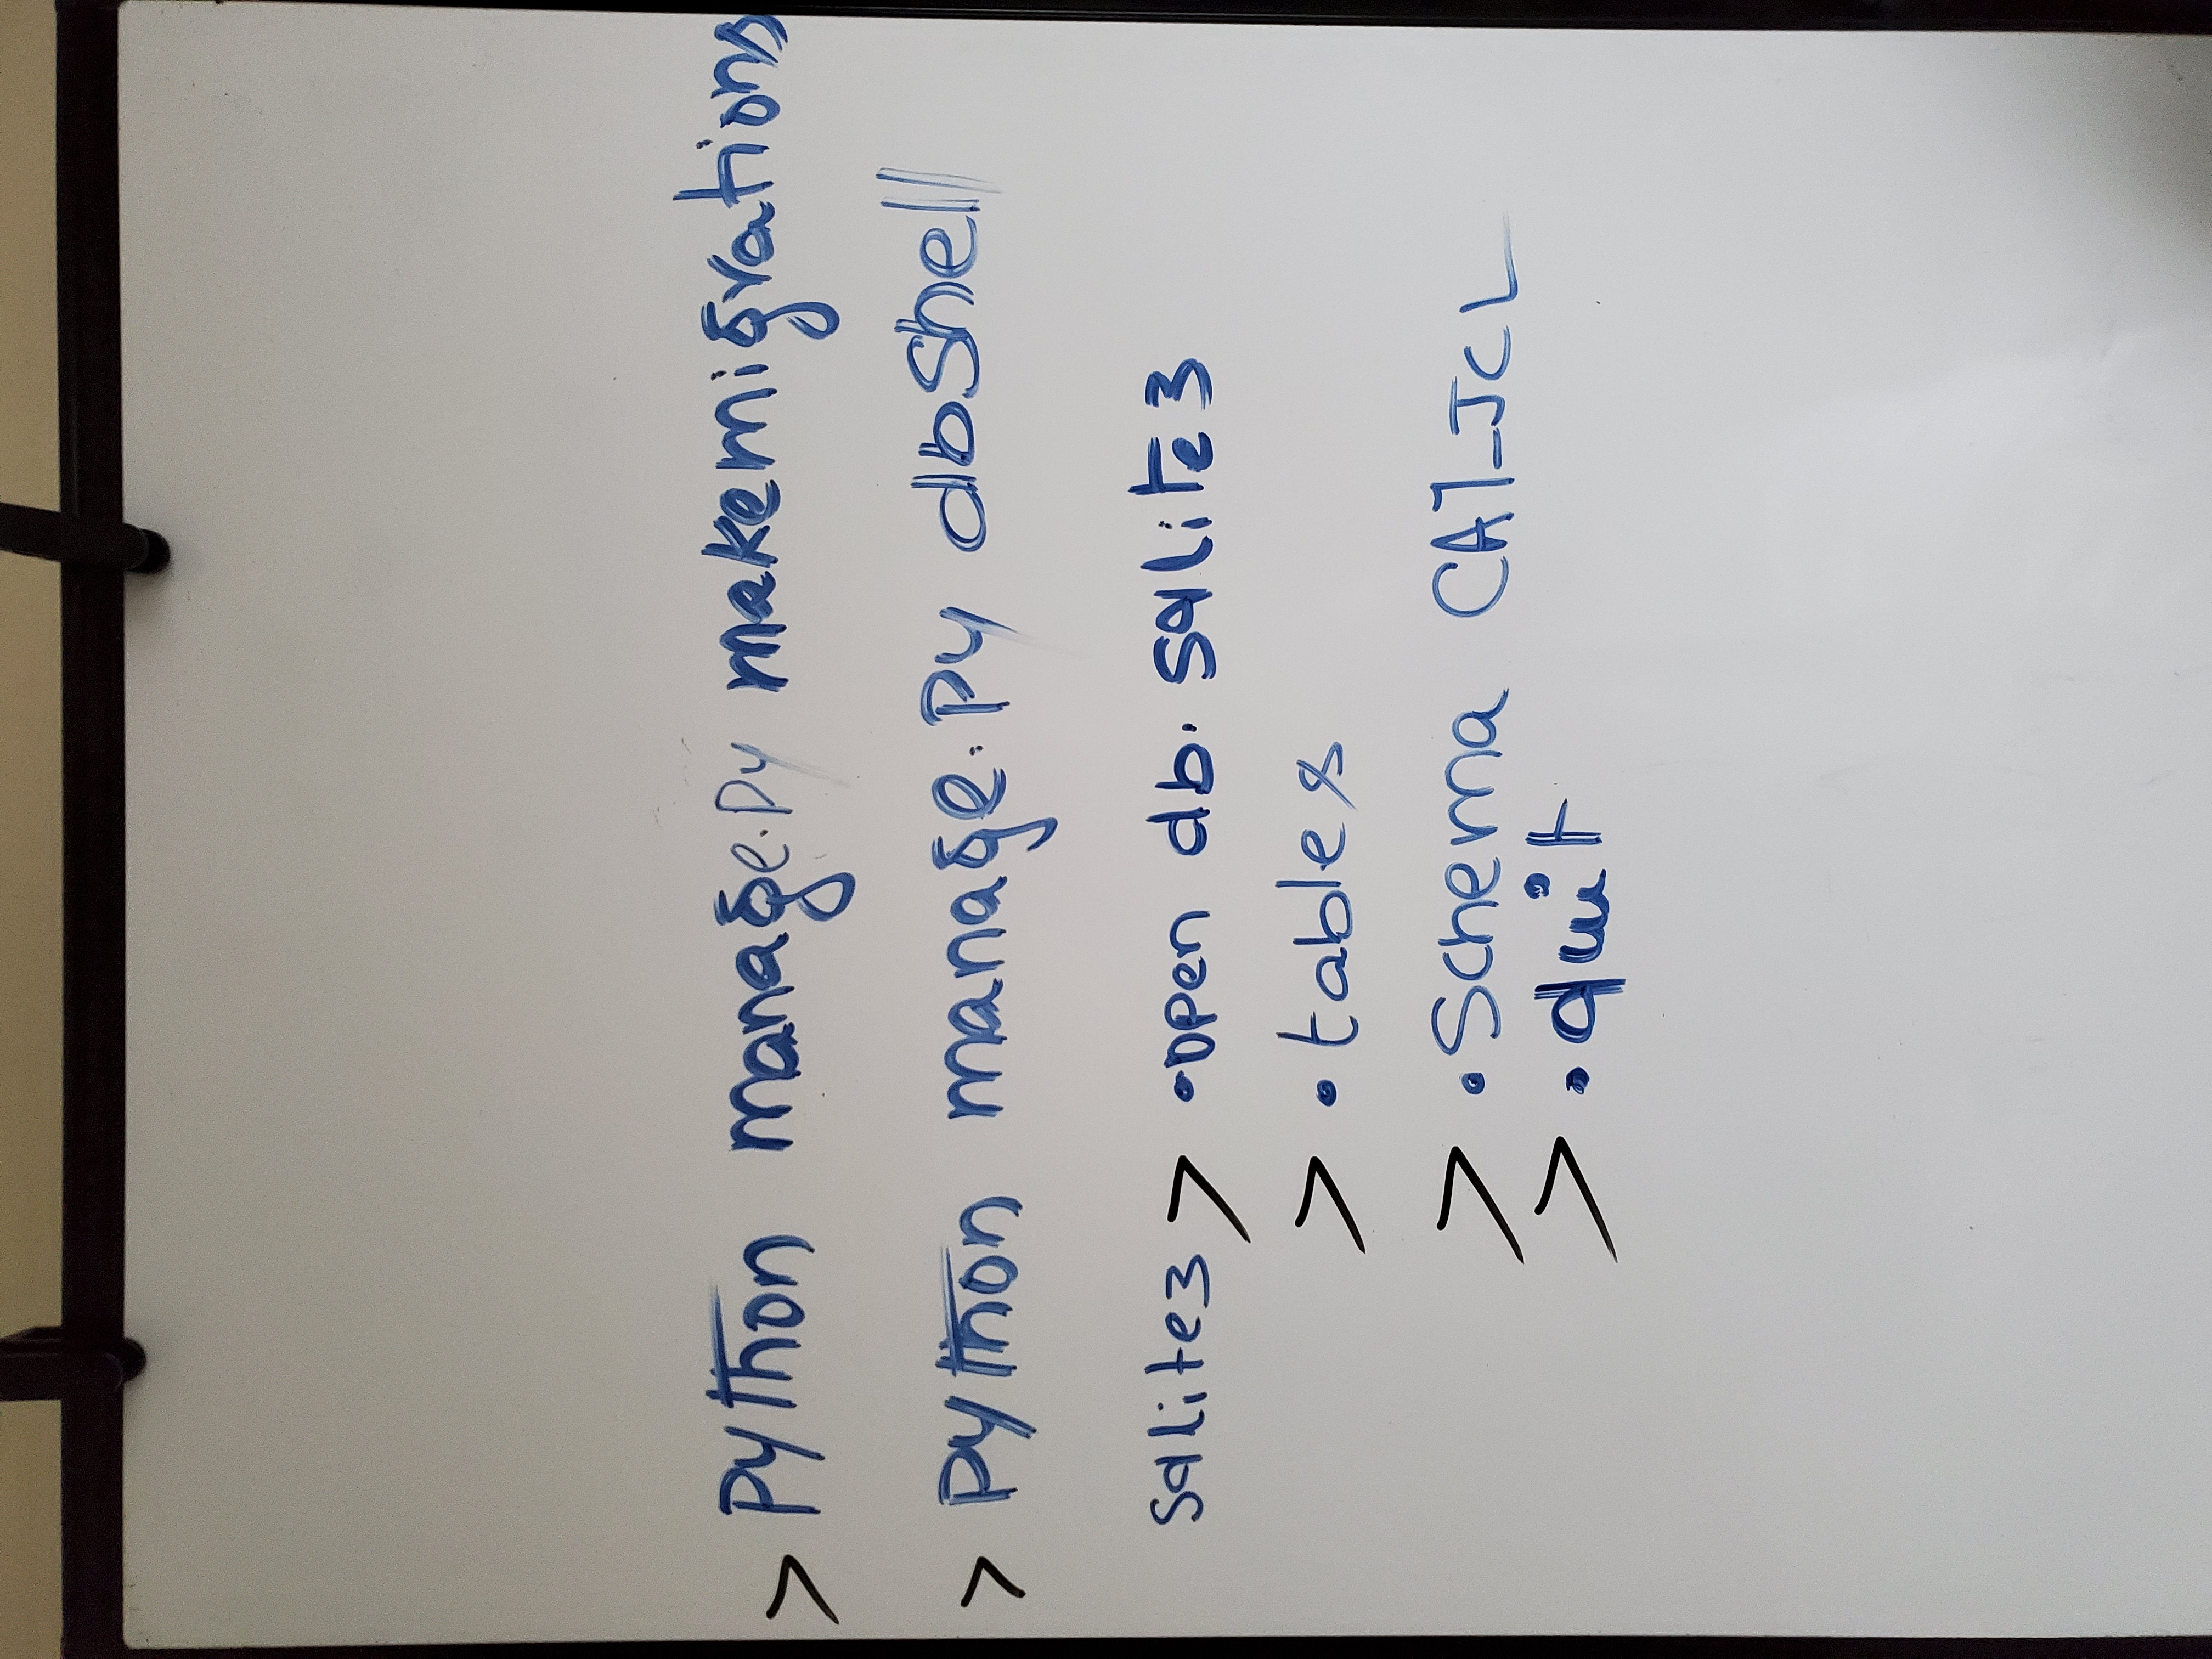 > python manage.py makemigrations
> python manage.py dbshell
sqlite3 > .open db.sqlite3
> .tables
> .schema CAT_JCL
> .quit